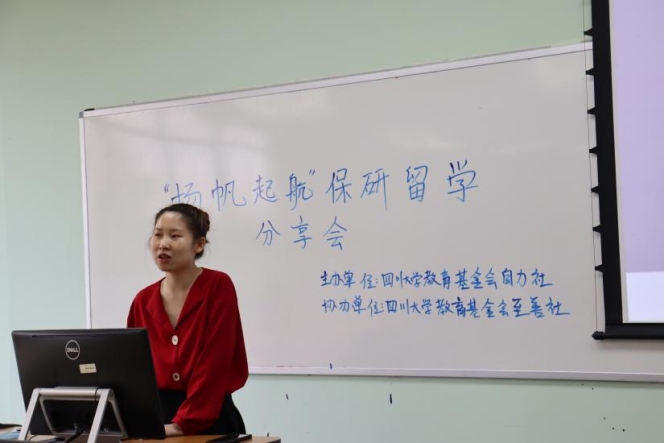 “扬帆起航”保研留学
分享会
主办单位:四川大学教育基金会自力社
协力单位:四川大学教育基金会至善社
DELL